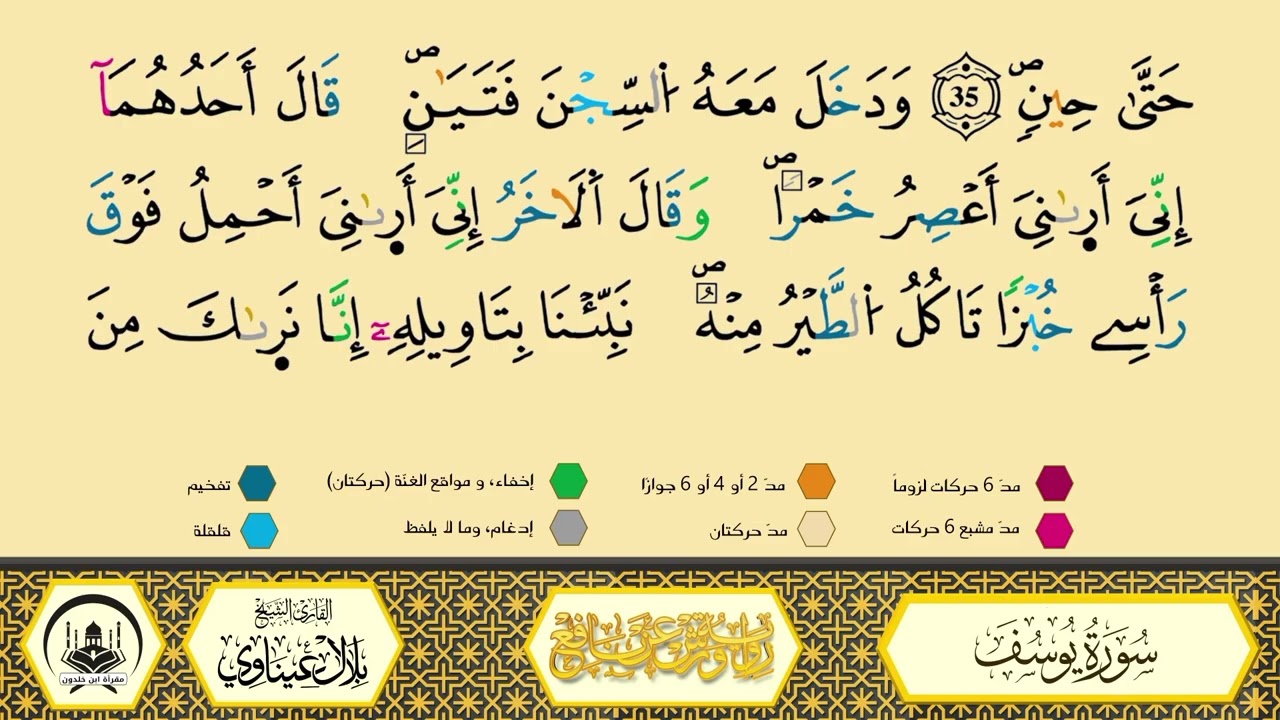 حَتَّىٰ حِينٖۖ 35 وَدَخَلَ مَعَهُ اُ۬لسِّجْنَ فَتَيَٰنِۖ قَالَ أَحَدُهُمَآ
إِنِّيَ أَر۪يٰنِيَ أَعْصِرُ خَمْراٗۖ وَقَالَ اَ۬لَاخَرُ إِنِّيَ أَر۪يٰنِيَ أَحْمِلُ فَوْقَ
رَأْسِے خُبْزاٗ تَاكُلُ اُ۬لطَّيْرُ مِنْهُۖ نَبِّئْنَا بِتَاوِيلِهِۦٓ إِنَّا نَر۪يٰكَ مِنَ
مدّ 6 حركات لزوماً
مدّ 2 أو 4 أو 6 جوازًا
إخفاء، و مواقع الغنّة (حركتان)
تفخيم
مدّ مشبع 6 حركات
مدّ حركتان
إدغام، وما لا يلفظ
قلقلة
سُورَةُ يُوسُفَ
رواية ورش عن نافع
القارئ الشيخ
بلال عيناوي
مقرأة ابن خلدون